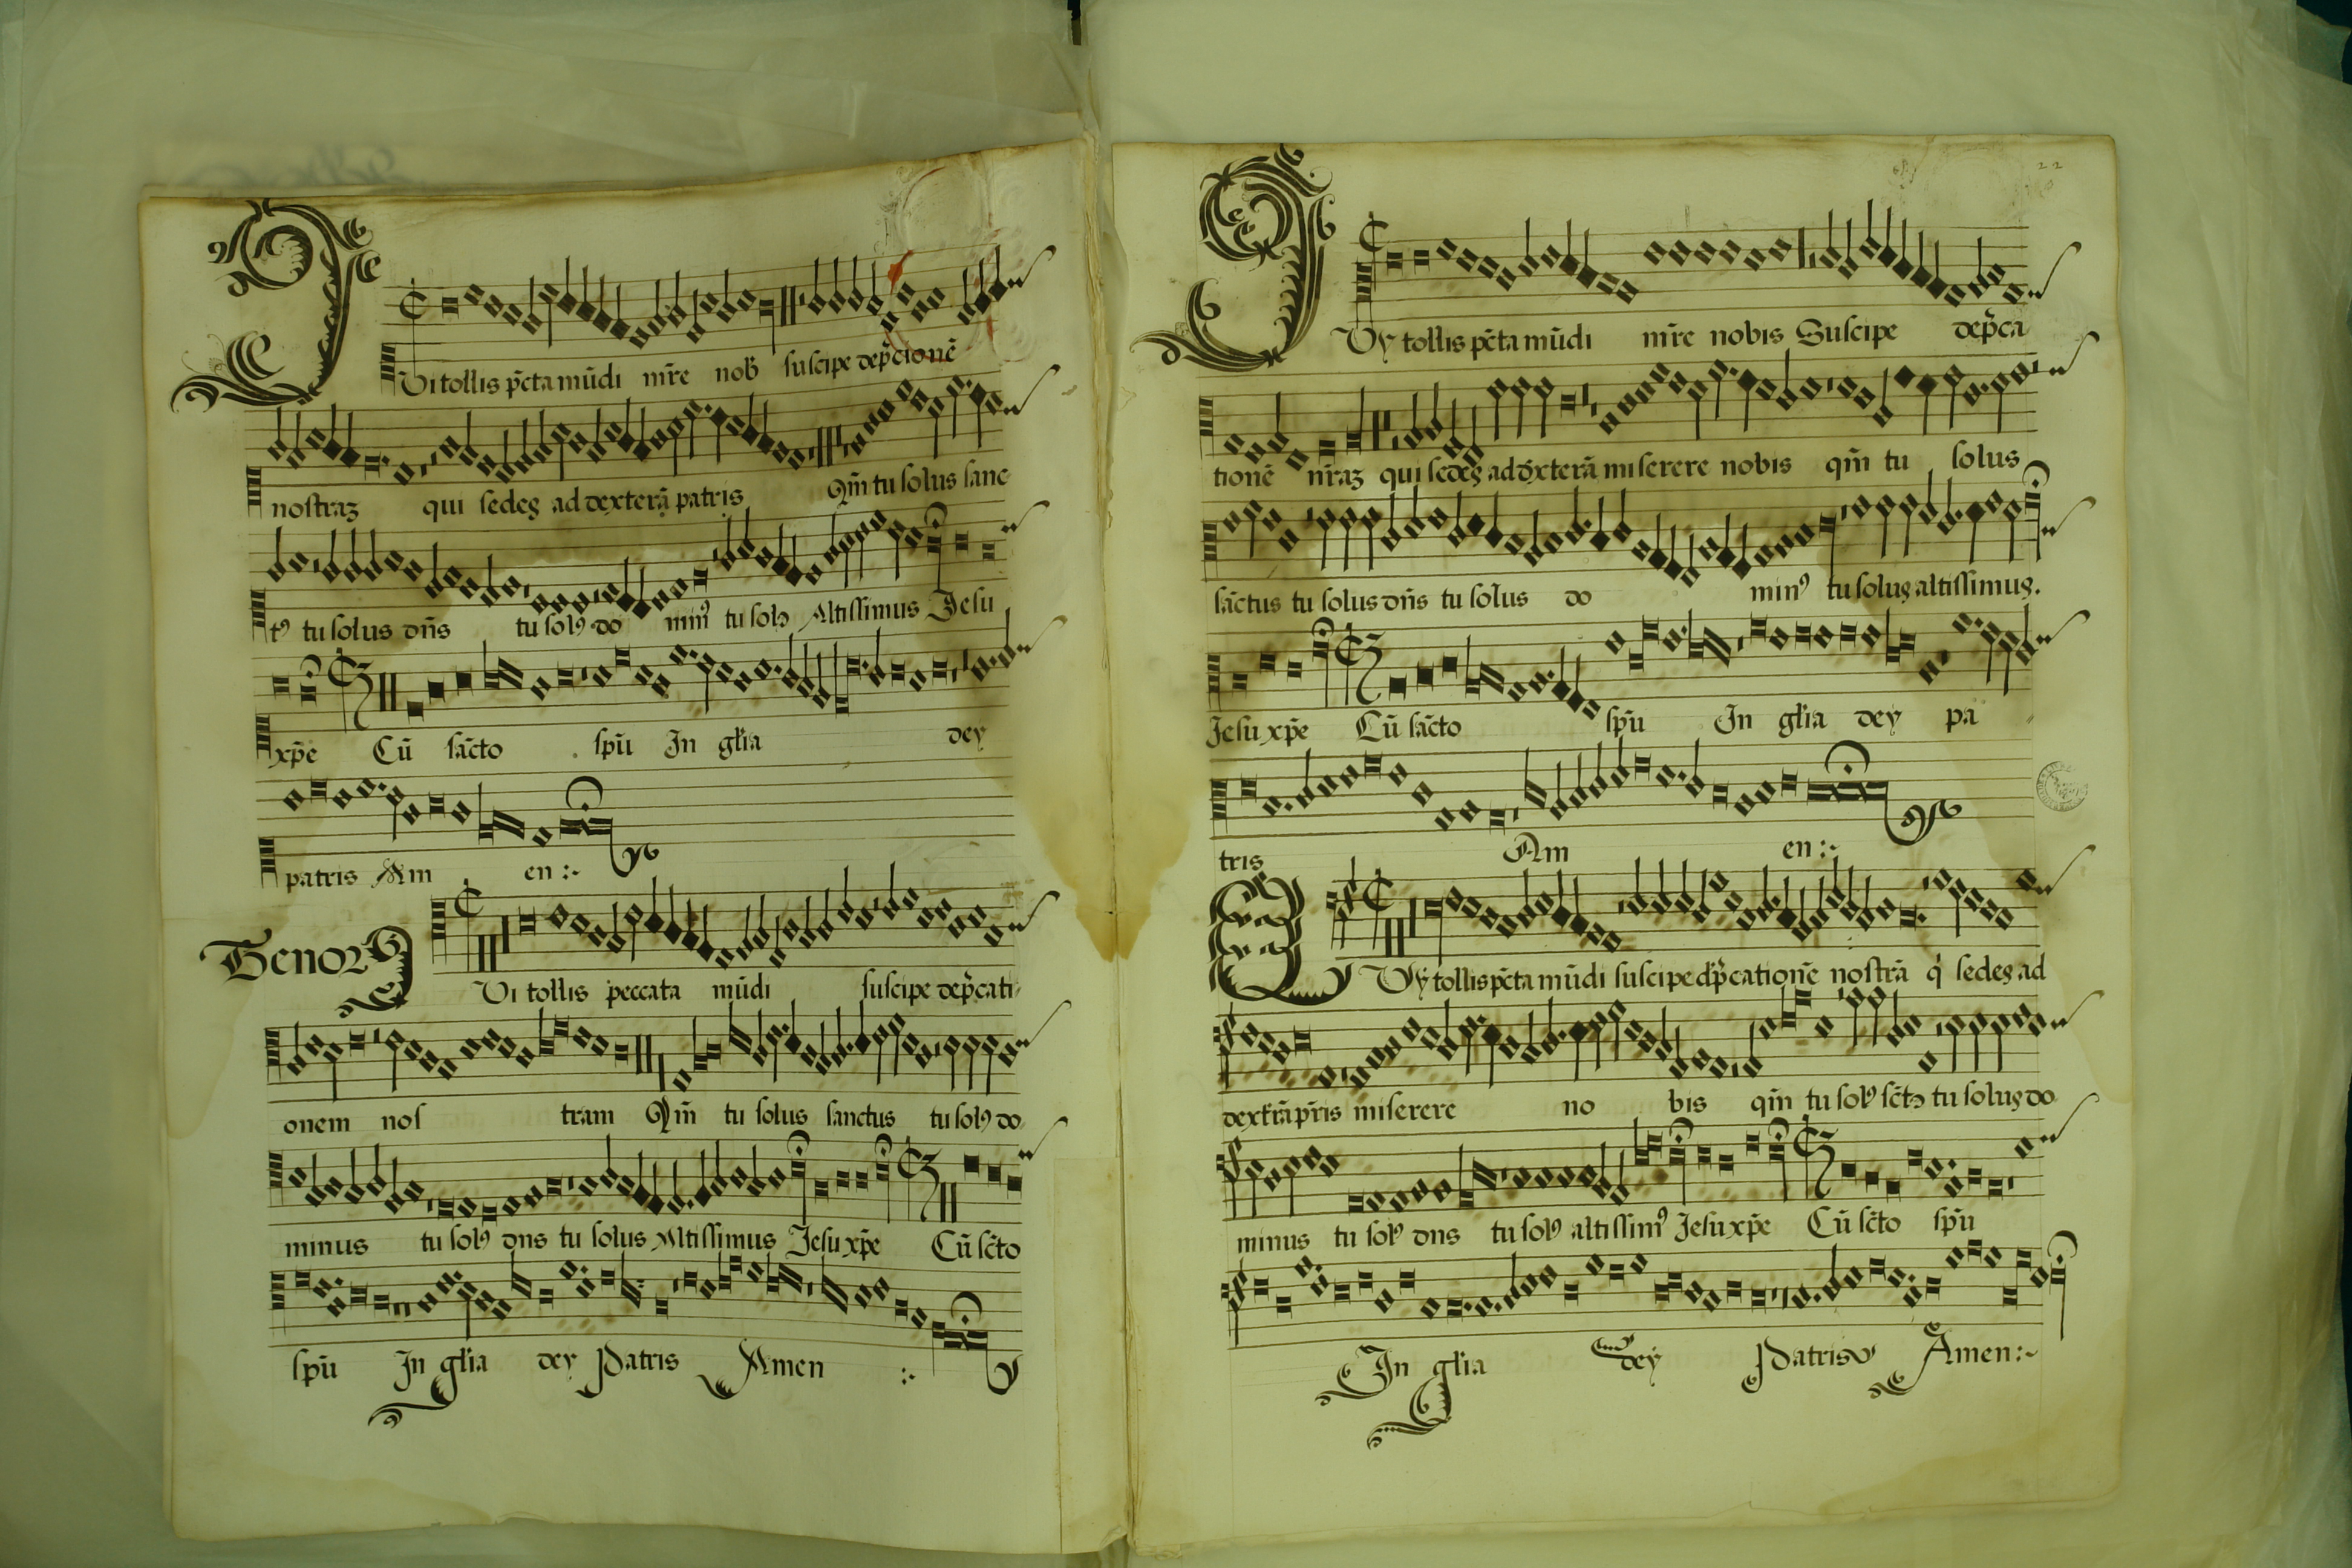 Vi tollis pc̄ta mūdi mr̄e nob̄ suscipe dep̄cionē
nostraꝫ qui sedes ad dexterā patris Qm̄ tu solus sanc
tꝰ tu solus dn̄s tu solꝰ do minꝰ tu solꝰ Altissimus Jesu
xp̄e Cū sāc̄to sp̄u In gl̄ia dey
patris Am en :~
Tenor
Vi tollis peccata mūdi suscipe dep̄cati
onem nos tram Qm̄ tu solus sanctus tu solꝰ do
minus tu solꝰ dns tu solus Altissimus Jesu xp̄e Cū sc̄to
sp̄u In gl̄ia dey Patris Amen :~
22
Vy tollis pc̄ta mūdi mr̄e nobis Suscipe dep̄ca
tionē nr̄aꝫ qui sedes ad dxterā miserere nobis qm̄ tu solus
sāctus tu solus dn̄s tu solus do minꝰ tu solus altissimus.
Jesu xp̄e Cū sāc̄to sp̄u In gl̄ia dey pa
tris Am en :~
Vy tollis pc̄ta mūdi suscipe dp̄cationē nostrā q̇ sedes ad
dext̄rā pr̄is miserere no bis qm̄ tu solꝰ sc̄tꝰ tu solus do
minus tu solꝰ dns tu solꝰ altissimꝰ Jesu xp̄e Cū sc̄to sp̄u
In gl̄ia dey Patris Amen :~